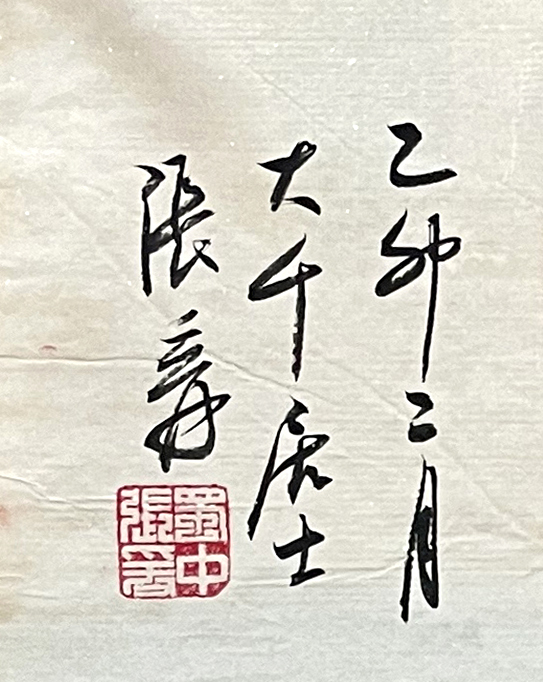 乙卯二月
大千居士
張爰
蜀中張爰